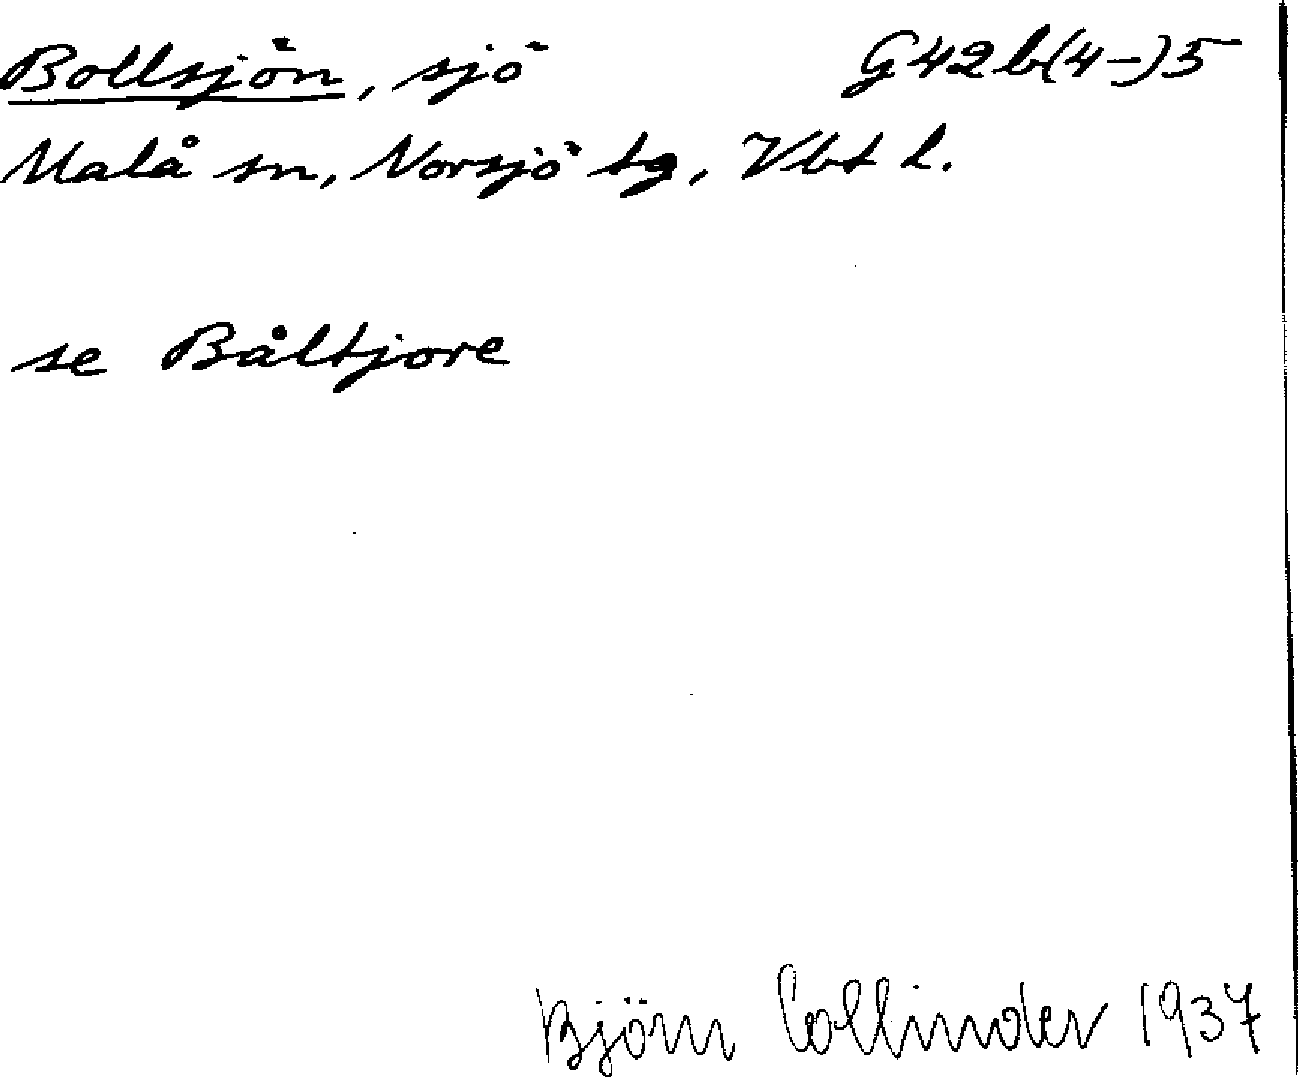 Bollsjön, sjö G42b(4-)5
Malå sn, Norsjö tg, Vbt l.
se Båltjore
Björn Collinder 1937